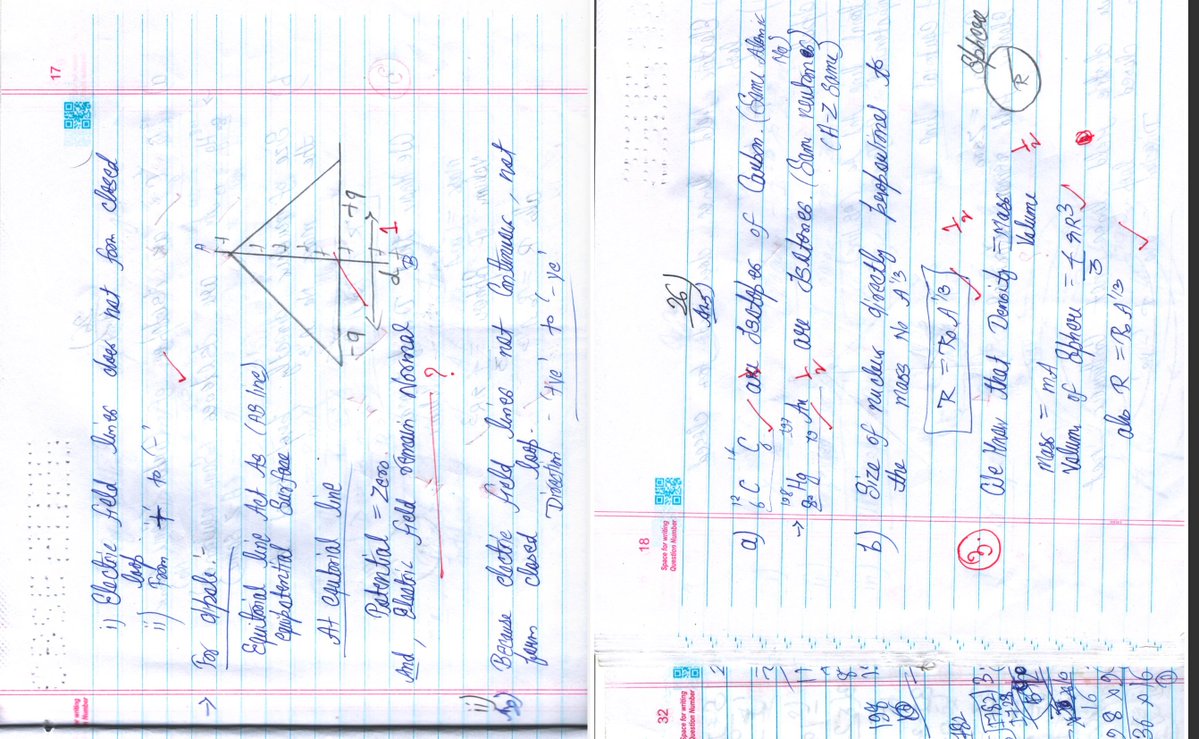 17
i) Electric field lines does not form closed
loop
ii) From '+' to '-'
→ For dipole:-
Equitorial line Act As (AB line)
equipotential Surface
A
-q
+q
d
1
B
At equitorial line
Potential = Zero.
And, Electric field remain Normal
?
3
ii)
Because electric field lines not Continuous, not
form closed loop.
Direction - '+ve' to '-ve'
18
Space for writing
Question Number
26)
Ans)
a) 12 6 C 14 6 C are Isotopes of Carbon. (Same Atomic
No)
→ 198 80 Hg 197 79 Au are Isotones (Same neutrones)
(A-Z Same)
1/2
b) Size of nucleus directly peropoutional to
the mass No A^1/3
R = R₀ A^1/3
1/2
Sphere
R
We Know that Density = Mass
Volume
1/2
mass = mA
Volume of Sphere = 4/3 πR3
als R = R₀ A^1/3
3.
32
Space for writing
Question Number